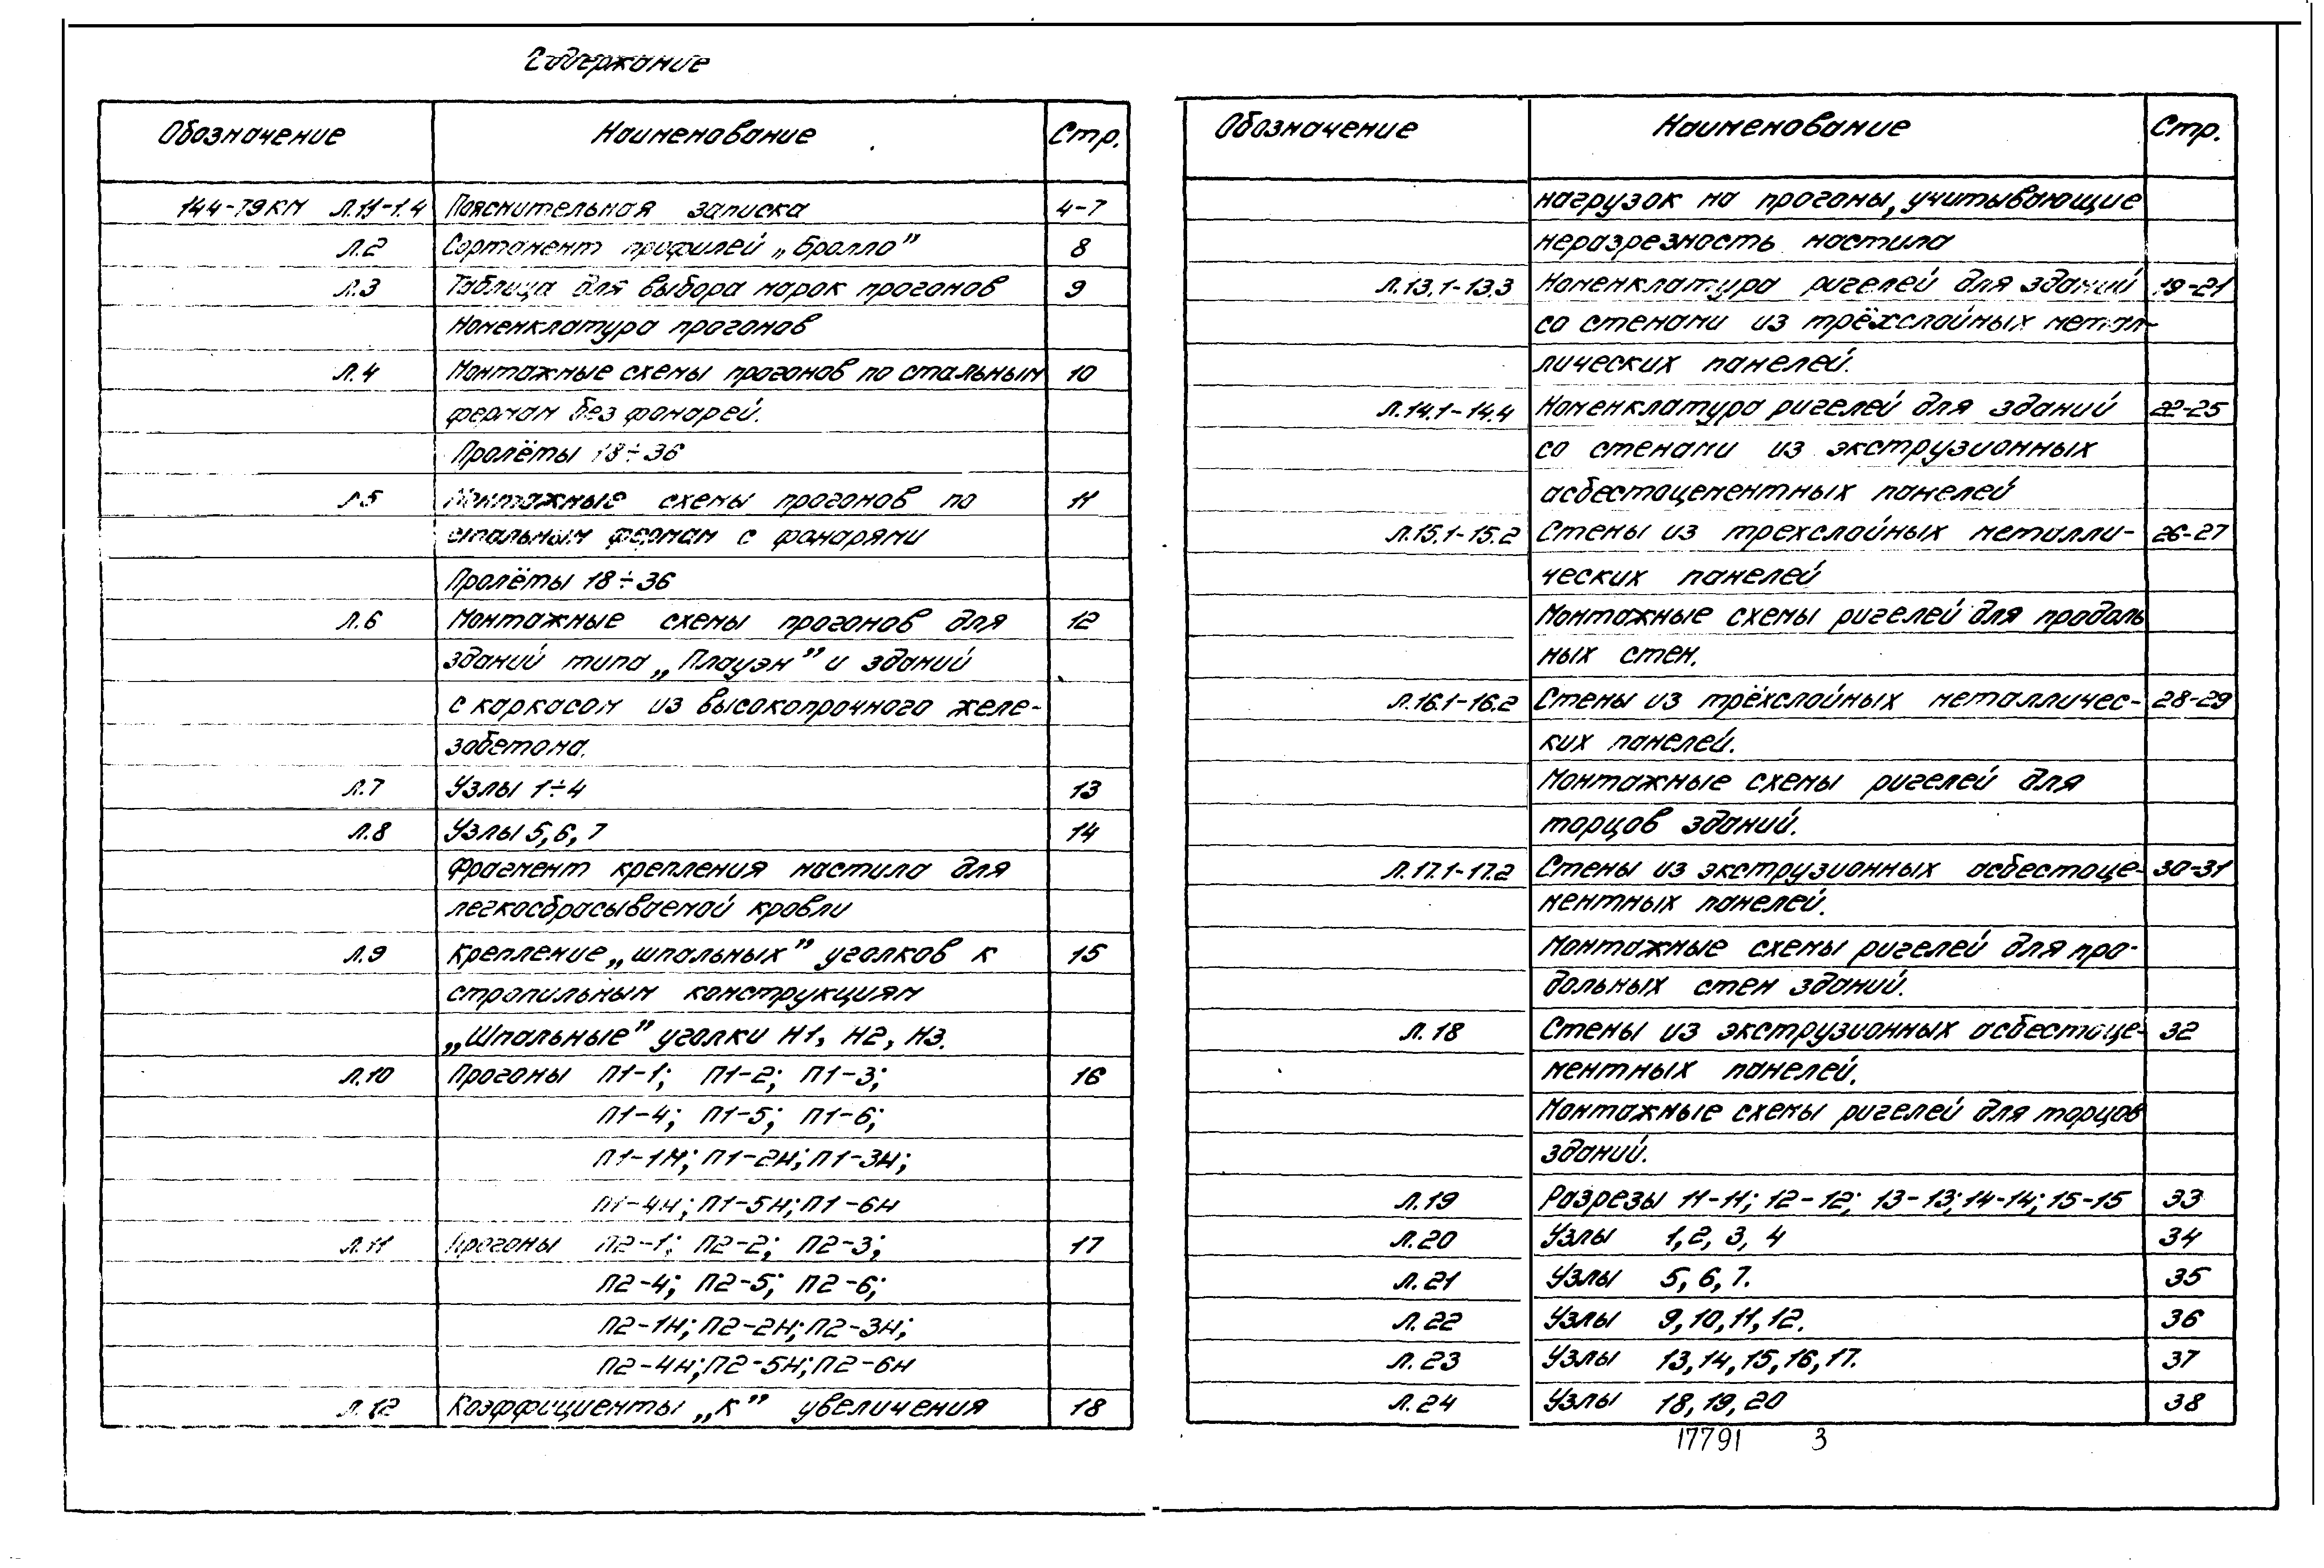 Содержание
Обозначение Наименование Стр.
144-79КМ Л.1.1-1.4 Пояснительная записка 4-7
Л.2 Сортамент профилей „Бралло” 8
Л.3 Таблица для выбора марок прогонов 9
Номенклатура прогонов
Л.4 Монтажные схемы прогонов по стальным 10
фермам без фонарей.
Пролёты 18÷36
Л5 Монтажные схемы прогонов по 11
стальным фермам с фонарями
Пролёты 18÷36
Л.6 Монтажные схемы прогонов для 12
зданий типа „Плауэн” и зданий
с каркасом из высокопрочного желе-
зобетона.
Л.7 Узлы 1÷4 13
Л.8 Узлы 5, 6, 7 14
Фрагмент крепления настила для
легкосбрасываемой кровли
Л.9 Крепление „шпальных” уголков к 15
стропильным конструкциям
„Шпальные” уголки Н1, Н2, Н3.
Л.10 Прогоны П1-1; П1-2; П1-3; 16
П1-4; П1-5; П1-6;
П1-1Н; П1-2Н; П1-3Н;
П1-4Н; П1-5Н; П1-6Н
Л.11 Прогоны П2-1; П2-2; П2-3; 17
П2-4; П2-5; П2-6;
П2-1Н; П2-2Н; П2-3Н;
П2-4Н; П2-5Н; П2-6Н
Л.12 Коэффициенты „К” увеличения 18
Обозначение Наименование Стр.
нагрузок на прогоны, учитывающие
неразрезность настила
Л.13.1-13.3 Номенклатура ригелей для зданий 19-21
со стенами из трёхслойных метал-
лических панелей.
Л.14.1-14.4 Номенклатура ригелей для зданий 22-25
со стенами из экструзионных
асбестоцементных панелей
Л.15.1-15.2 Стены из трехслойных металли- 26-27
ческих панелей
Монтажные схемы ригелей для продоль
ных стен.
Л.16.1-16.2 Стены из трёхслойных металличес- 28-29
ких панелей.
Монтажные схемы ригелей для
торцов зданий.
Л.17.1-17.2 Стены из экструзионных асбестоце- 30-31
ментных панелей.
Монтажные схемы ригелей для про-
дольных стен зданий.
Л.18 Стены из экструзионных асбестоце- 32
ментных панелей.
Монтажные схемы ригелей для торцов
зданий.
Л.19 Разрезы 11-11; 12-12; 13-13; 14-14; 15-15 33
Л.20 Узлы 1, 2, 3, 4 34
Л.21 Узлы 5, 6, 7. 35
Л.22 Узлы 9, 10, 11, 12. 36
Л.23 Узлы 13, 14, 15, 16, 17. 37
Л.24 Узлы 18, 19, 20 38
17791 3